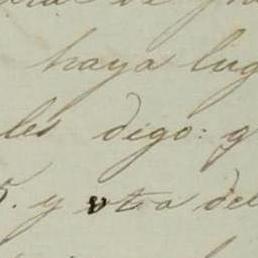 haya lug
les digo: q
5. y otra del